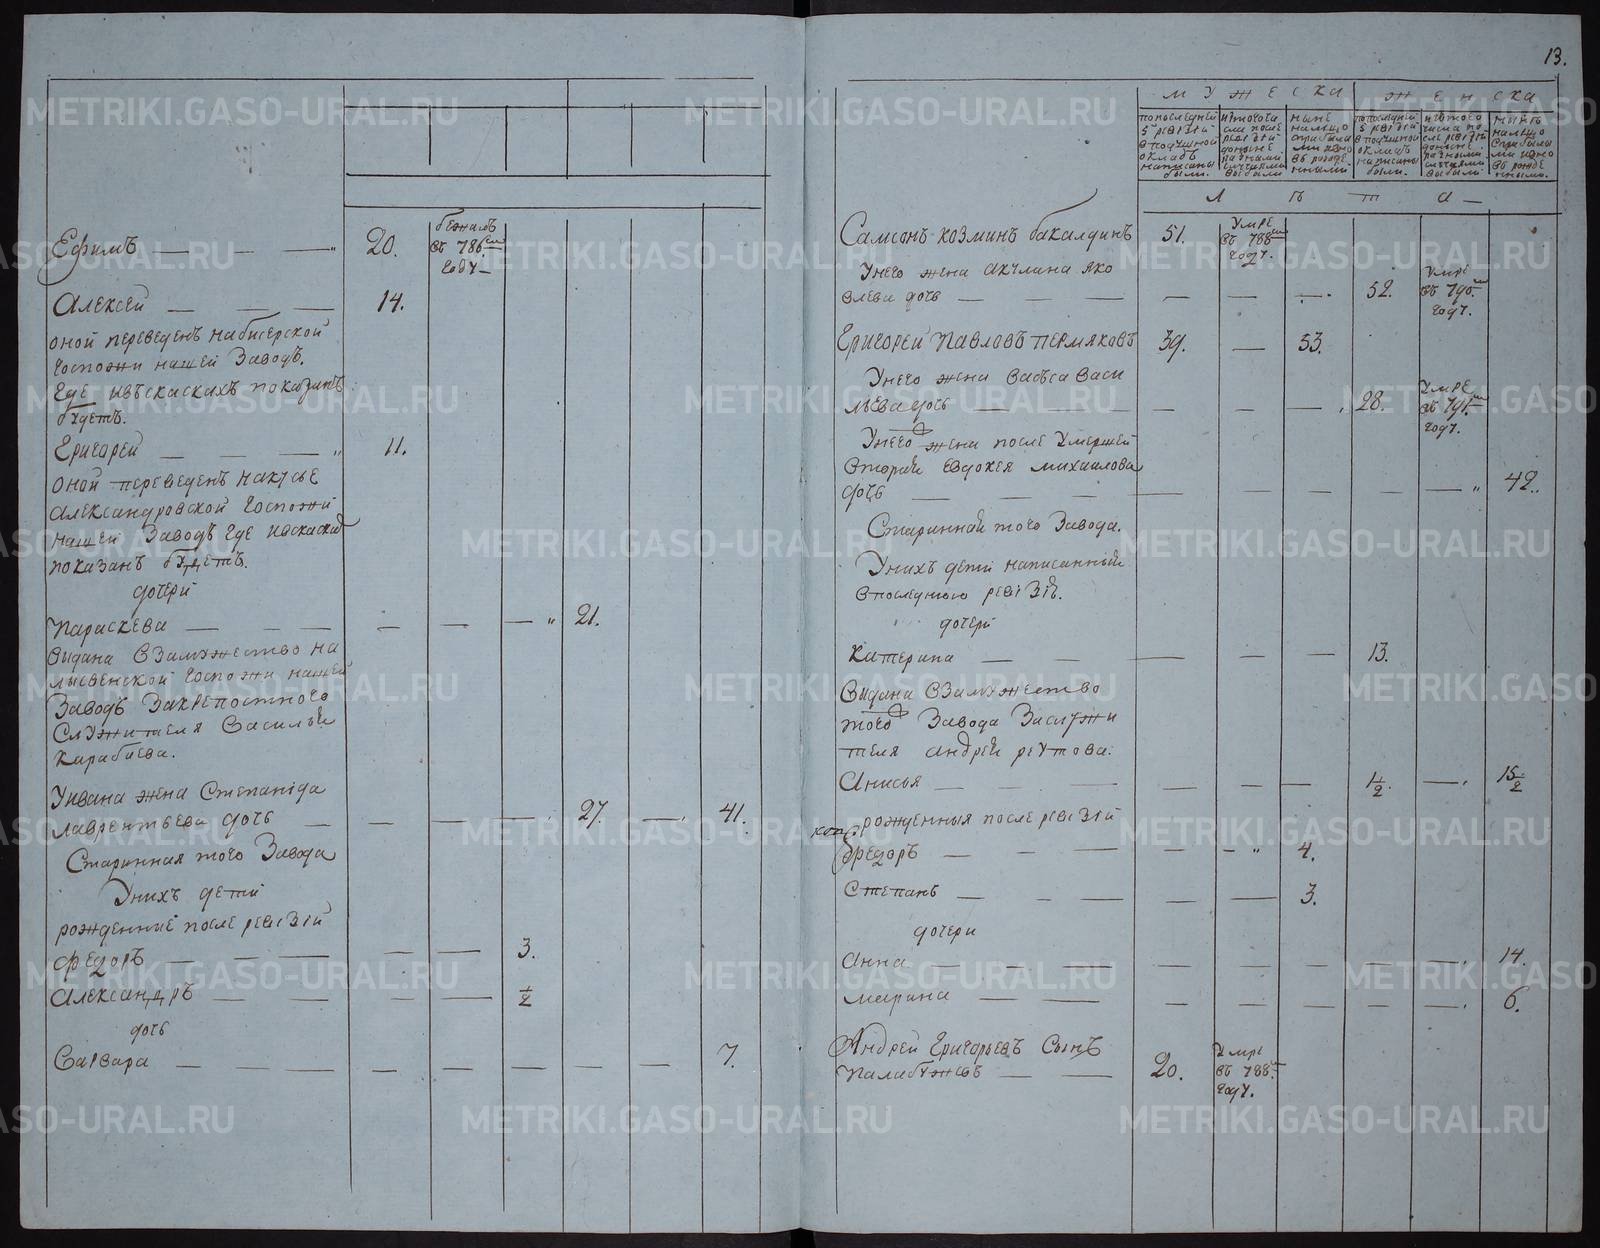 Ефимъ — — — 20. бежалъ
въ 786мъ
году —
Алексей — — — 14.
оной переведенъ набисерской
госпожи нашей Заводъ.
Где въскаскахъ показанъ
будетъ.
Григорей — — — 11.
оной переведенъ накусье
александровской госпожи
нашей Заводъ Где васкаскахъ
показанъ будетъ.
дочери
Параскева — — — — — — 21.
выдана взамужество на
лысвенской госпожи нашей
Заводъ Закрепостного
служителя Василья
Карабаева.
Уивана жена Степанида
лаврентьева дочь — — — — 27. — 41.
Старинная того Завода
Унихъ дети
рожденные после ревизiи
Федоръ — — — — — 3.
Александръ — — — — 1/2
дочь
Варвара — — — — — — — — 7.
13.
мужеска женска
попоследней
5 ревизiи
в подушной
окладъ
написаны
были.
изтого чи
сла после
ревизiи
доныне
разными
случаями
выбыли
ныне
налицо
сприбылы
ми и но
во рожде
нными
попоследней
5 ревизiи
в подушной
окладъ
написаны
были.
изтого
числа по
сле ревизiи
доныне
разными
случаями
выбыли
ныне
налицо
сприбылы
ми и но
во рожде
нными.
лъта —
Самсонъ козминъ бакалдинъ 51. Умре
въ 788мъ
году.
Унего жена акулина яко
влева дочь — — — — — — 52. Умре
въ 790мъ
году.
Григорей Павловъ пермяковъ 39. — 53.
Унего жена Васъса Васи
льева дочь — — — — — — 28. Умре
въ 791мъ
году.
Унего жена после Умершей
вторая Евдокея михаилова
дочь — — — — — — — — — 42.
Старинная того Завода.
Унихъ дети написанныя
впоследнюю ревизiю.
дочери
Катерина — — — — — 13.
выдана взамужество
того Завода Заслужи
теля андрея реутова.
Анисья — — — — — — 1/2. — 15 1/2
рожденныя после ревизiи
Федоръ — — — — — 4.
Степанъ — — — — — 3.
дочери
Анна — — — — — — — — 14.
марина — — — — — — — 6.
Андрей Григорьевъ Сынъ
Палабужевъ — — 20. Умре
въ 788мъ
году.
METRIKI.GASO-URAL.RU